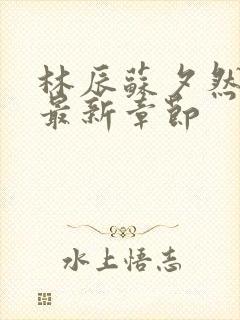 林辰蘇夕然
最新章節
水上悟志